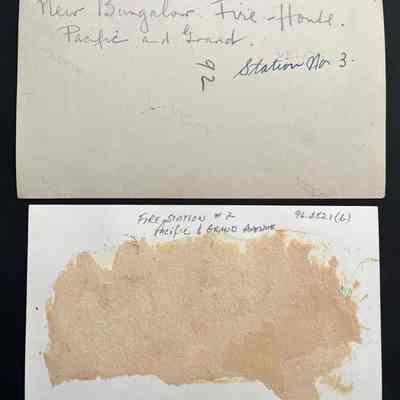 New Bungalow Fire-House.
Pacific and Grand.
92
Station No. 3.
FIRE STATION # 2
Pacific & GRAND AVENUE
96.2521(b)